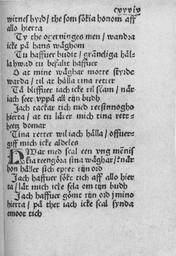 witnesbyrd/ the som sökia honom aff
allo hierta
Ty the ogerninges men/ wandra
icke på hans wäghom
Tu haffuer budit/ gräneliga häl-
la hwad tu befalt haffuer
O at mine wäghar motte styrde
warda/ til at halla tina retter
Tå bliffuer iach icke til skam/ när
iach seer vppå all tijn budh
Jach tackar tich med retsinnogho
hierta/ at tu lärer mich tina rett-
heetens domar
Tina retter wil iach hålla/ offuer-
giff mich icke aldeles
HWar med scal een vng menis
kia reengöra sina wäghar/ när
hon håller sich epter tijn ord
Jach haffuer sökt tich aff allo hier
ta/ låt mich icke fela om tijn budh
Jach haffuer gömt tijn ord j mino
hierta/ på thet iach icke scal synda
emoot tich